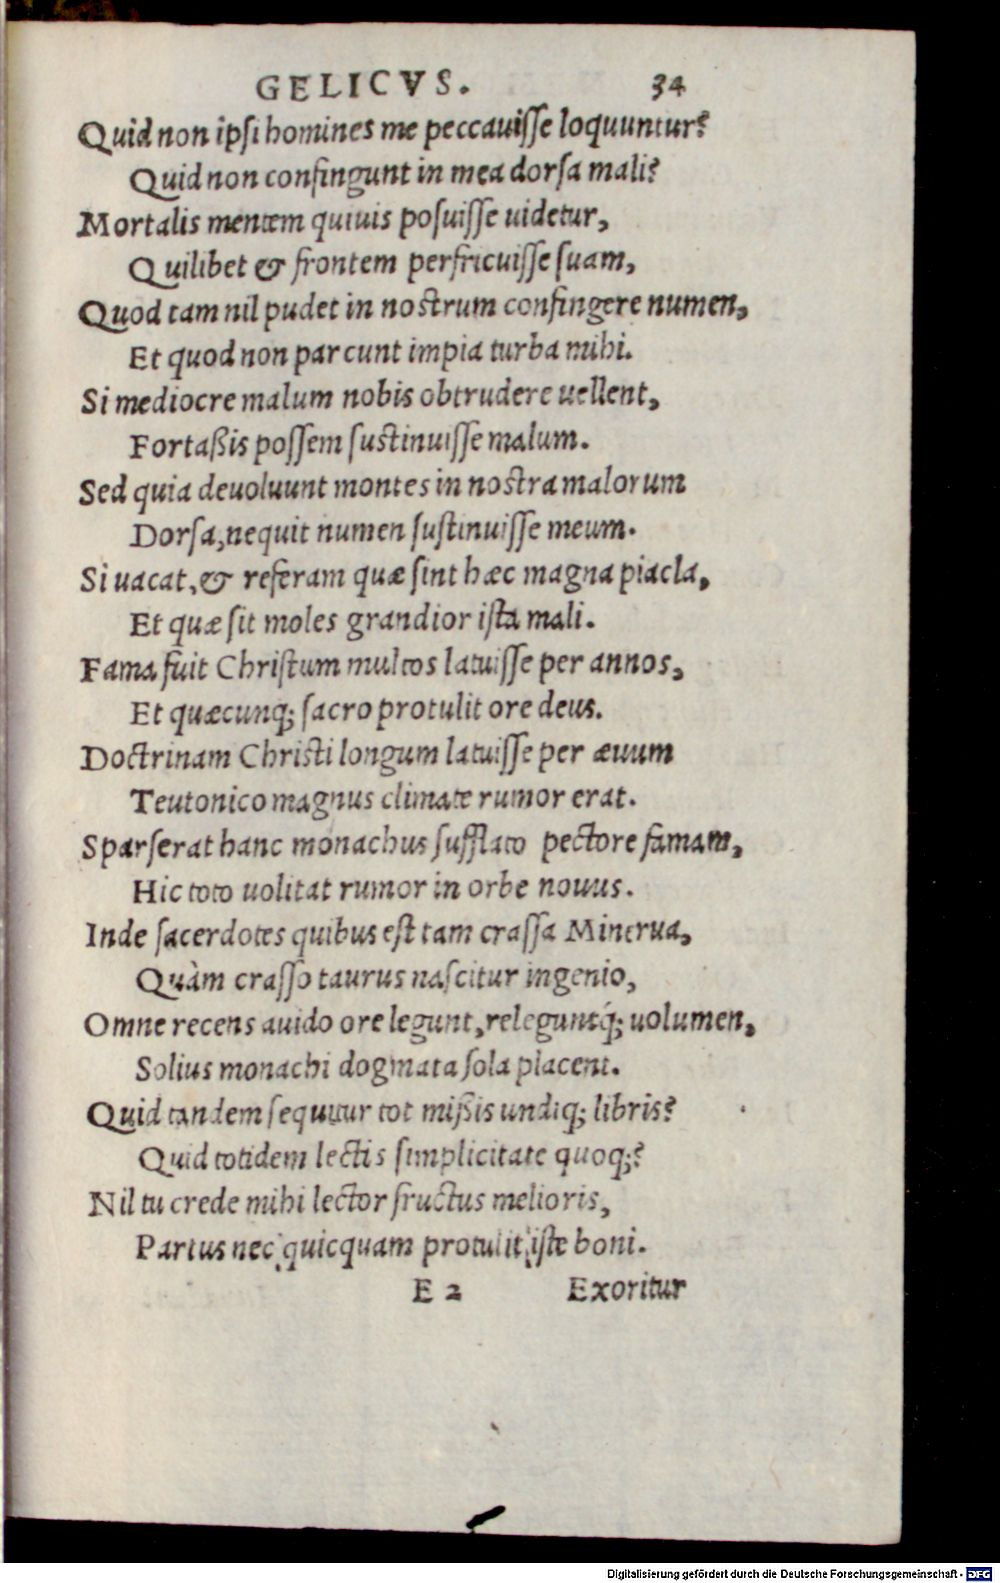 GELICVS. 34
Quid non ipsi homines me peccauisse loquuntur?
Quid non confingunt in mea dorsa mali?
Mortalis mentem quiuis posuisse uidetur,
Quilibet & frontem perfricuisse suam,
Quod tam nil pudet in nostrum confingere numen,
Et quod non parcunt impia turba mihi.
Si mediocre malum nobis obtrudere uellent,
Fortaßis possem sustinuisse malum.
Sed quia deuoluunt montes in nostra malorum
Dorsa, nequit numen sustinuisse meum.
Si uacat, & referam quæ sint hæc magna piacla,
Et quæ sit moles grandior ista mali.
Fama fuit Christum multos latuisse per annos,
Et quæcunq; sacro protulit ore deus.
Doctrinam Christi longum latuisse per æuum
Teutonico magnus climate rumor erat.
Sparserat hanc monachus sufflato pectore famam,
Hic toto uolitat rumor in orbe nouus.
Inde sacerdotes quibus est tam crassa Minerua,
Quàm crasso taurus nascitur ingenio,
Omne recens auido ore legunt, releguntq́; uolumen,
Solius monachi dogmata sola placent.
Quid tandem sequitur tot mißis undiq; libris?
Quid totidem lectis simplicitate quoq;?
Nil tu crede mihi lector fructus melioris,
Partus nec quicquam protulit iste boni.
E 2 Exoritur
Digitalisierung gefördert durch die Deutsche Forschungsgemeinschaft - DFG